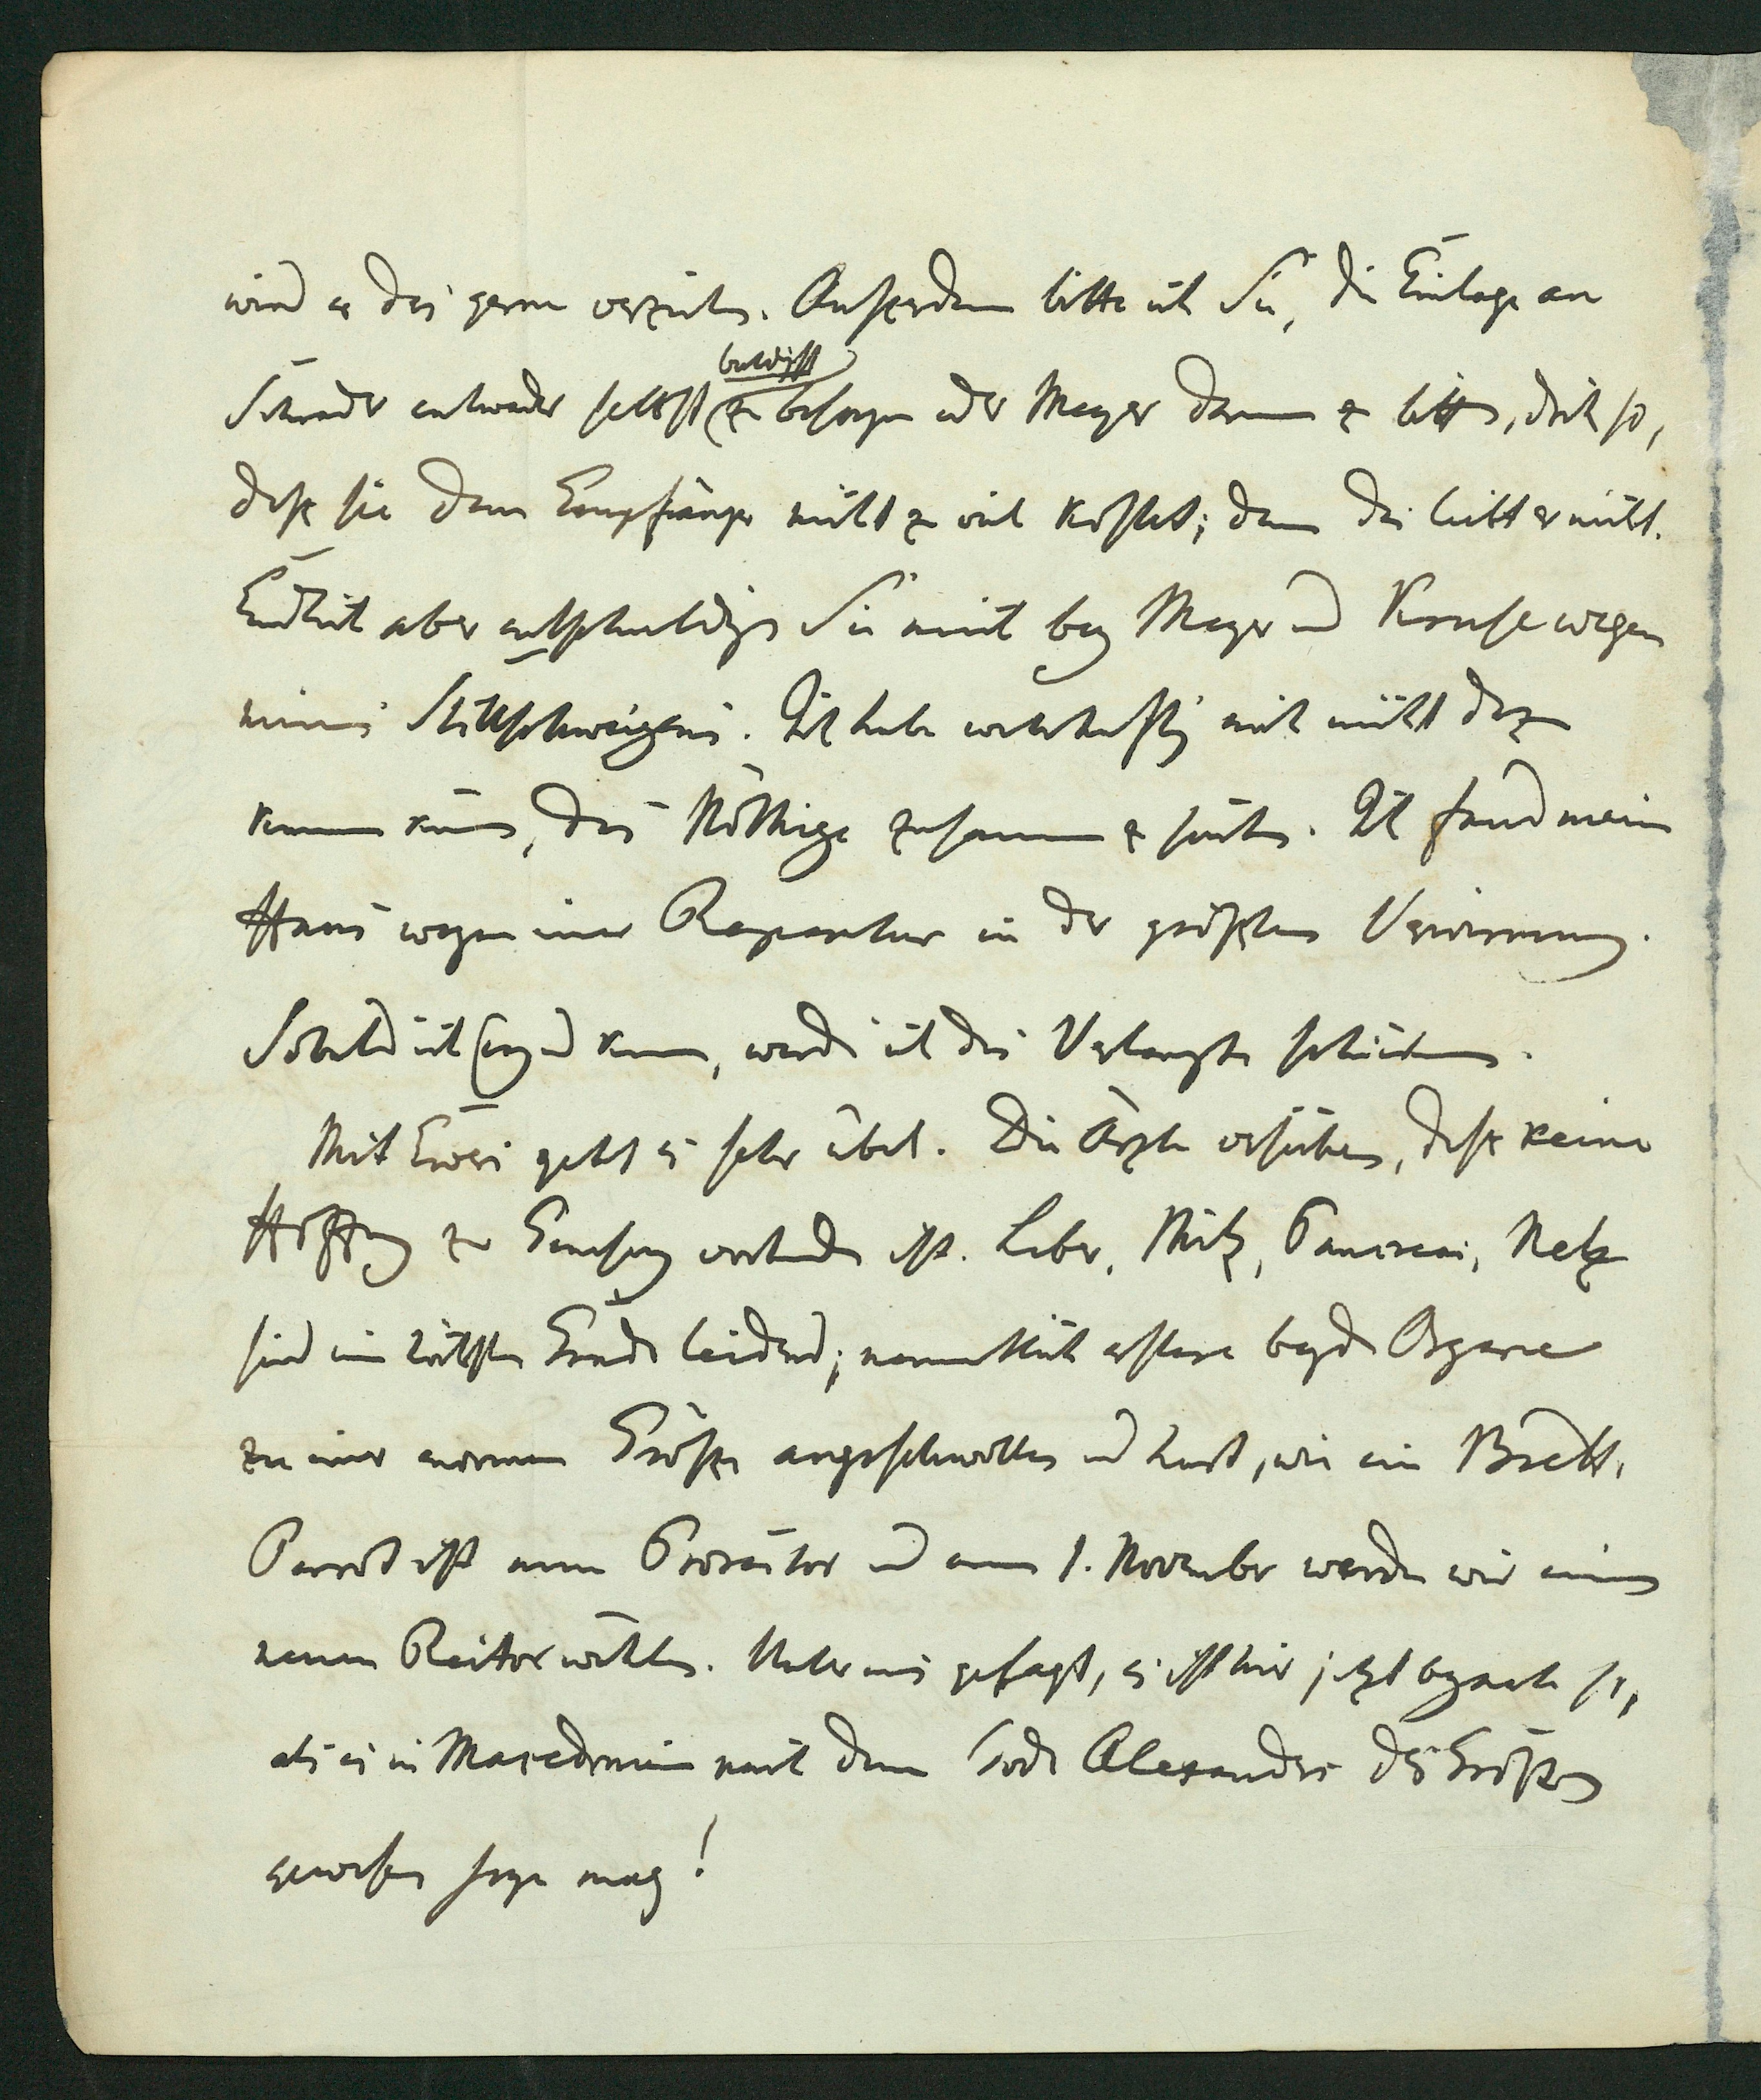 wird er das gerne verzeihen. Außerdem bitte ich Sie, die Einlage an
baldigst
Schrader entweder selbst zu besorgen oder Meyer darum zu bitten, doch so,
daß sie dem Empfänger nicht zu viel kostet; denn das liebt er nicht.
Endlich aber entschuldigen Sie mich bey Meyer und Kruse wegen
meines Stillschweigens. Ich habe wahrhaftig noch nicht dazu
kommen können, das Nöthige zusammen zu suchen. Ich fand mein
Haus wegen einer Reparatur in der größten Verwirrung.
Sobald ich irgend kann, werde ich das Verlangte schicken.
Mit Ewers geht es sehr übel. Die Ärzte versichern, daß keine
Hoffnung zur Genesung vorhanden ist. Leber, Milz, Pancreas, Netz
sind im höchsten Grade leidend; namentlich erstere beyde Organe
zu einer enormen Größe angeschwollen und hart, wie ein Brett.
Parrot ist nun Prorector und am 1. November werden wir einen
neuen Rector wählen. Unter uns gesagt, es ist hier jetzt beynahe so,
als es in Macedonien nach dem Tode Alexanders des Großen
gewesen seyn mag!